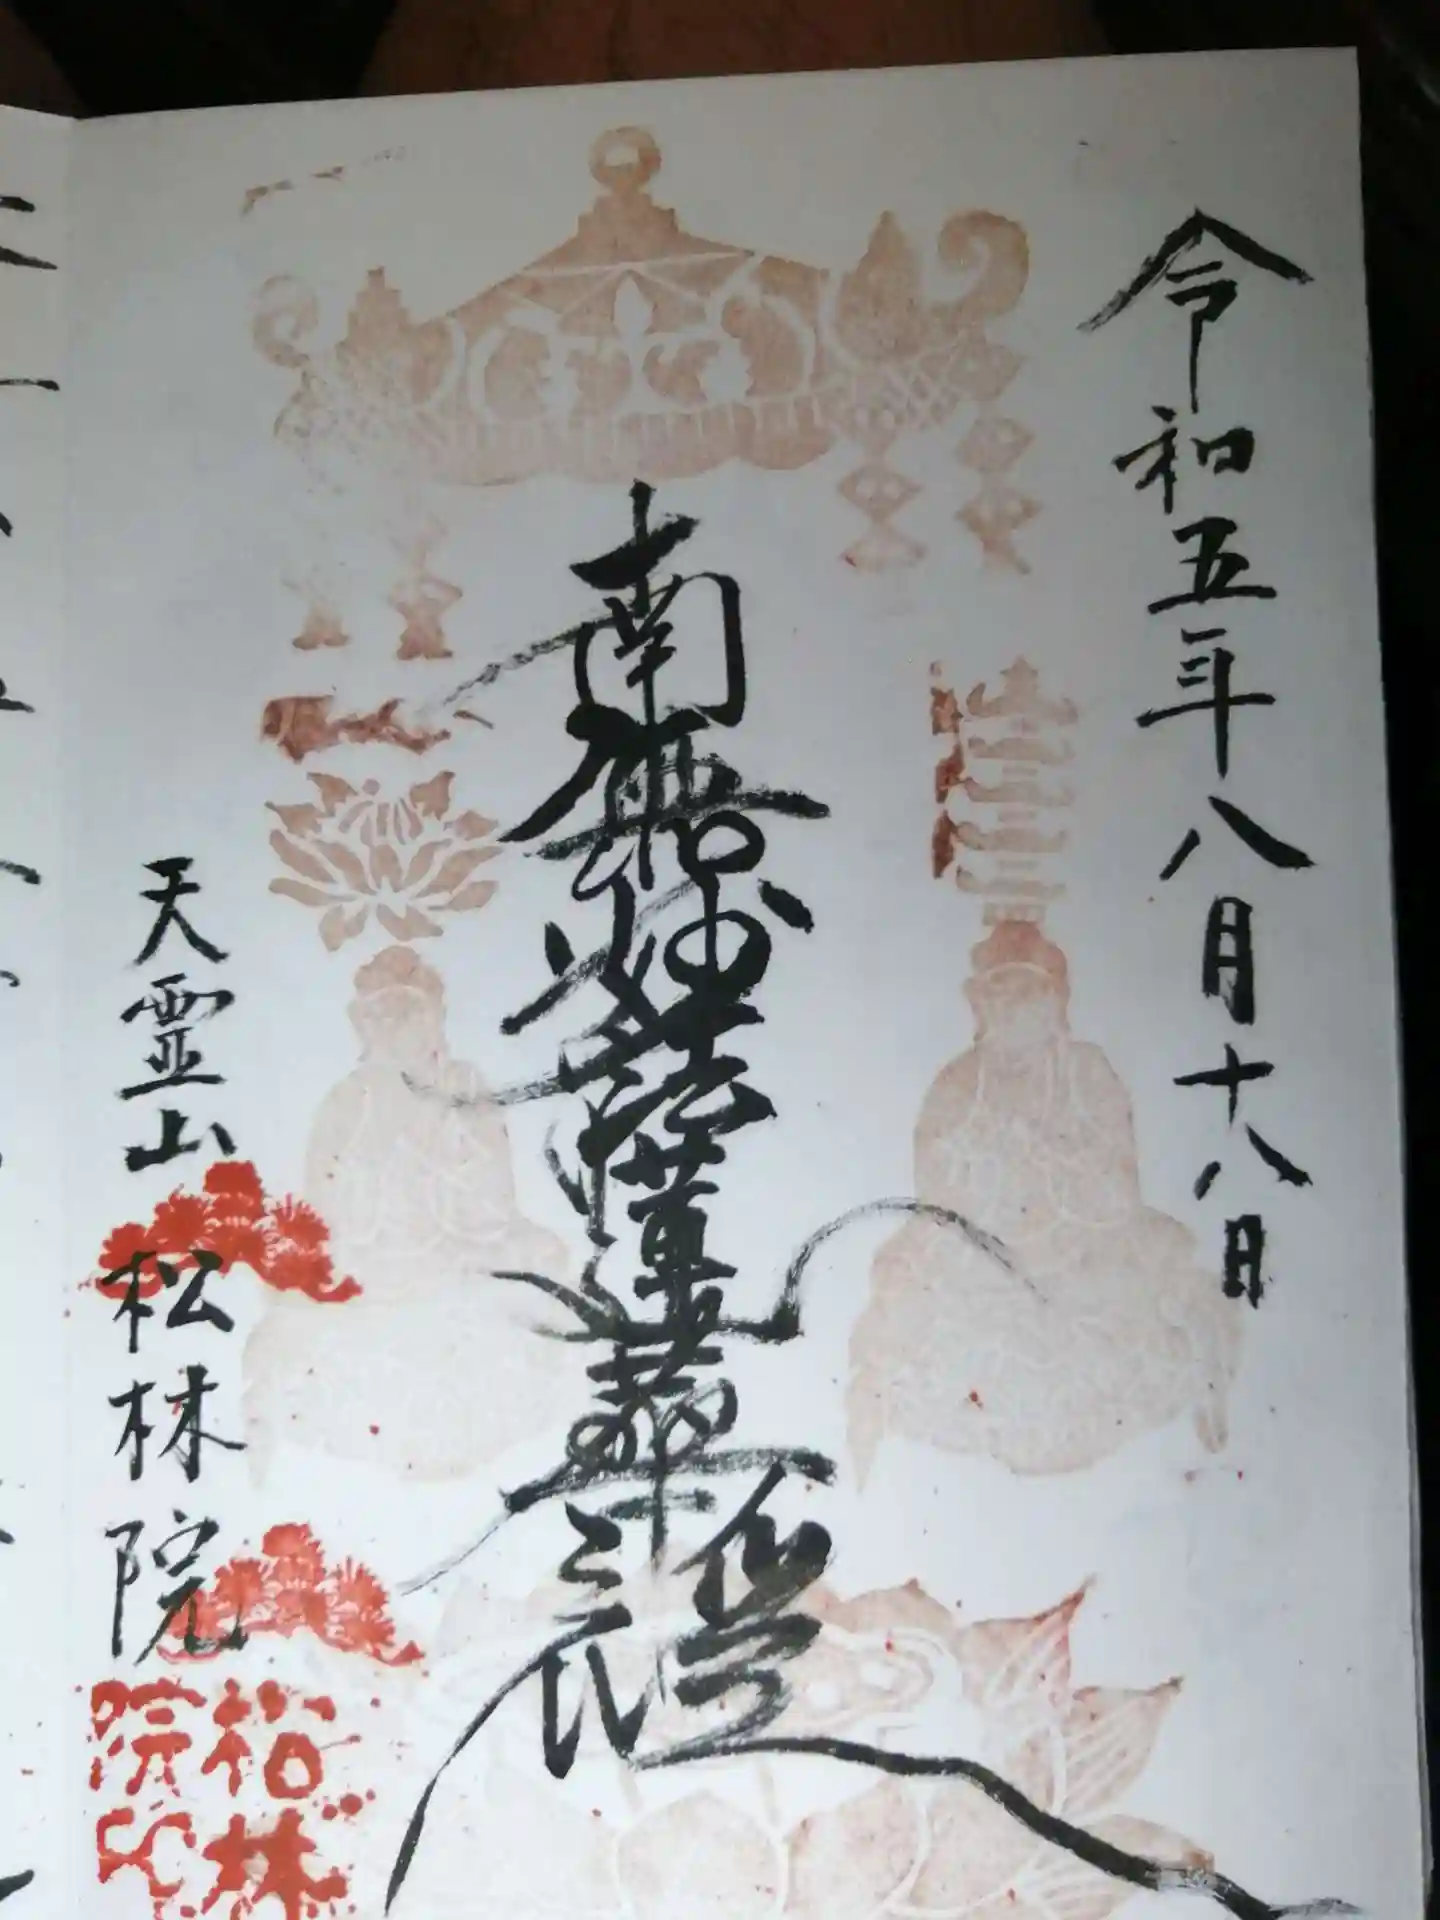 令和五年八月十八日
南無妙法蓮華経
天霊山
松林院
松林
院印